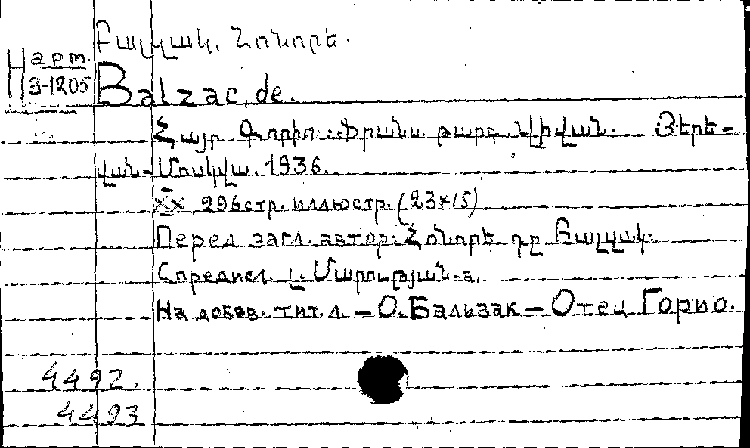 Բալզակ, Հոնորե.
Н арт.
3-1205
Balzac, de.
Հայր Գորիո. Ֆրանս. թարգ. Երե-
վան-Մոսկվա. 1936.
XX 296стр. иллюстр. (23×15)
Перед загл. автор: Հոնորե դը Բալզակ.
С предисл. Մարության-а.
На добав. тит. л. – О. Бальзак – Отец Горио.
4492.
4493